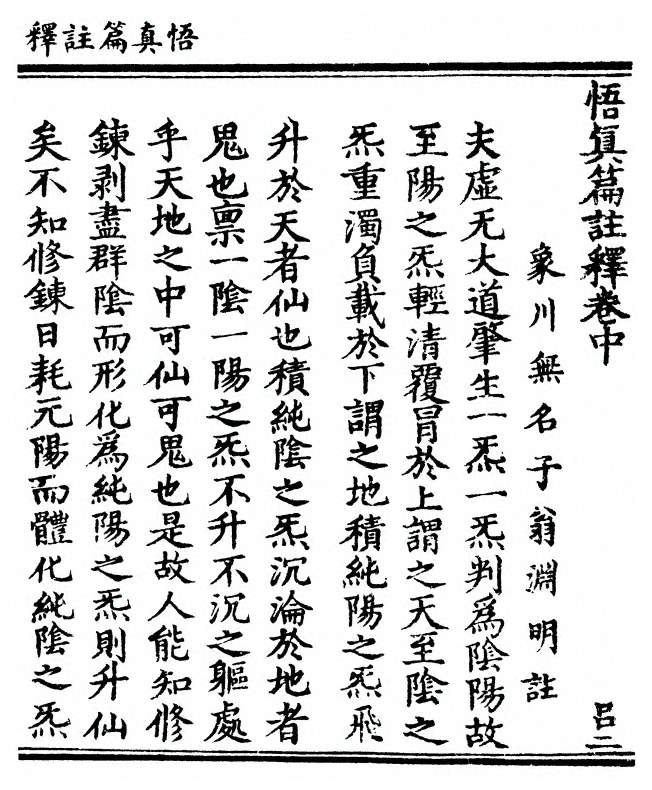 悟真篇註釋
悟真篇註釋卷中　呂二
象川無名子翁淵明註
夫虛无大道肇生一炁一炁判爲陰陽故
至陽之炁輕清覆冒於上謂之天至陰之
炁重濁負載於下謂之地積純陽之炁飛
升於天者仙也積純陰之炁沉淪於地者
鬼也禀一陰一陽之炁不升不沉之軀處
乎天地之中可仙可鬼也是故人能知修
鍊剥盡群陰而形化爲純陽之炁則升仙
矣不知修鍊日耗元陽而體化純陰之炁